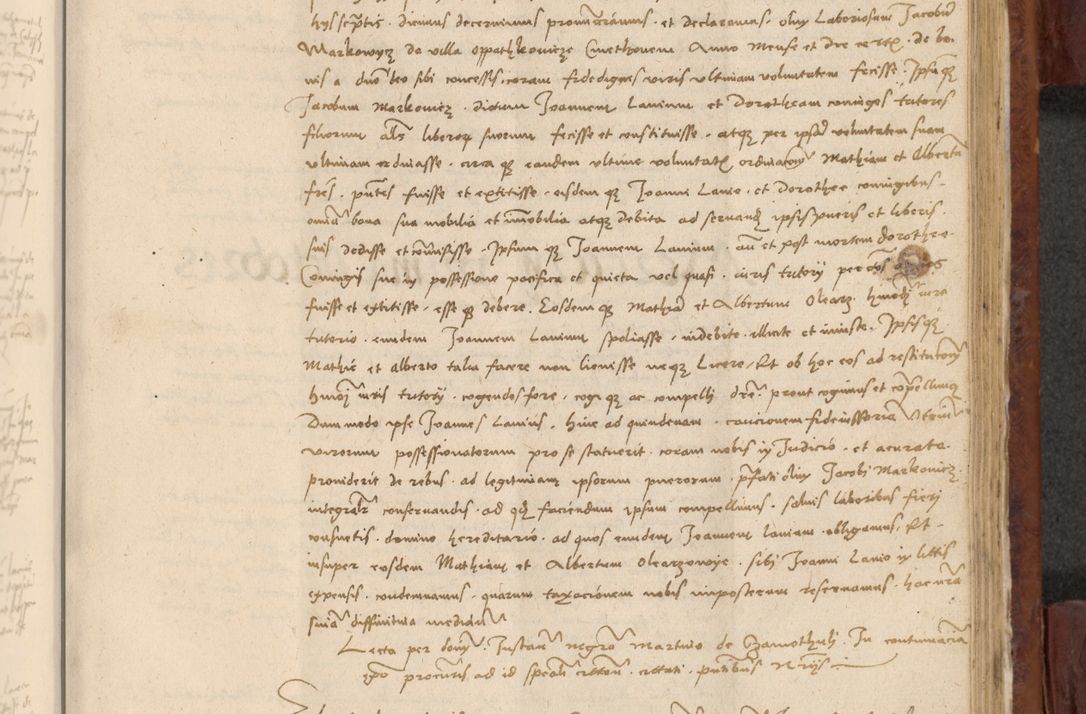 hys scriptis dicimus decernimus pronunciamus et declaramus olim Laboriosum Jacobum
Markowycz de villa Oppathkowicze Cmethonem Anno mense et die certis de bo-
nis a deo sibi concessis coram fidedignis viris vltimam voluntatem fecisse Ipsumqz
Jacobum Markowicz dictum Joannem Lanium et Dorotheam coniuges tutores
filiorum als liberorum suorum fecisse et constituisse atqz per ipsam voluntatem suam
vltimam ordinasse circa qz eandem vltime voluntatis ordinationem Mathiam et Albertum
fres pntes fuisse et extitisse eisdem qz Joanni Lanio et Dorothee coniugibus
omnia bona sua mobilia et immobilia atqz debita ad seruand ipsis pueris et liberis
suis dedisse et commisisse Ipsum qz Joannem Lanium an et post mortem dorothee
Coniugis sue in possessione pacifica et quieta vel quasi iuris tutorij per eos
fuisse et extitisse esse qz debere Eosdem qz Mathiam et Albertum Olearz hmodi iure
tutorio eundem Joannem Lanium spoliasse indebite illicite et iniuste Ipsis qz
Mathie et Alberto talia facere non licuisse neqz Licere Et ob hoc eos ad restitutionem
hmoi iuris tutorij cogendos fore cogi qz ac compelli debere prout cogimus et compellimus
Dum modo ipse Joannes Lanius hinc ad quindenam caucionem fideiussoriam
virorum possessionatorum pro se statuerit coram nobis in Judicio et accurate
prouiderit de rebus ad legitimam ipsorum puerorum pfati olim Jacobi Markowicz
integraliter conseruandis ad qd faciendum ipsum compellimus saluis laboribus fieri
consuetis domino hereditario ad quos eundem Joannem Lanium obligamus Et
insuper eosdem Mathiam et Albertum Olearzowye sibi Joanni Lanio in littis
expensis condemnamus quarum taxacionem nobis imposterum reseruamus hac nra
sma diffinitiua mediante
Lecta per dominum Instante negro Martino de Szamothuli In contumaciam
procuris ad id speali citatione citati pntibus Nrijs